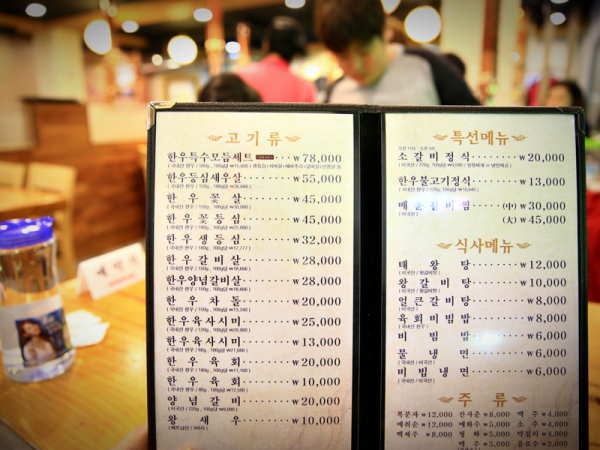 고기류
한우특수모듬세트 ₩78,000
한우등심새우살 ₩55,000
한우꽃살 ₩45,000
한우꽃등심 ₩45,000
한우생등심 ₩32,000
한우갈비살 ₩28,000
한우양념갈비살 ₩28,000
한우차돌 ₩20,000
한우육사시미 ₩25,000
한우육사시미 ₩13,000
한우육회 ₩20,000
한우육회 ₩10,000
양념갈비 ₩20,000
왕새우 ₩10,000
특선메뉴
소갈비정식 ₩20,000
한우불고기정식 ₩13,000
매운갈비찜 (中) ₩30,000
(미국산)
(大) ₩45,000
식사메뉴
태왕탕 ₩12,000
왕갈비탕 ₩10,000
얼큰갈비탕 ₩8,000
육회비빔밥 ₩8,000
비빔밥 ₩6,000
물냉면 ₩6,000
비빔냉면 ₩6,000
주류
복분자 ₩12,000 산사춘 ₩8,000 맥주 ₩4,000
매취순 ₩12,000 매화수 ₩5,000 소주 ₩4,000
백세주 ₩8,000 청하 ₩5,000 막걸리 ₩4,000
음료수 ₩2,000